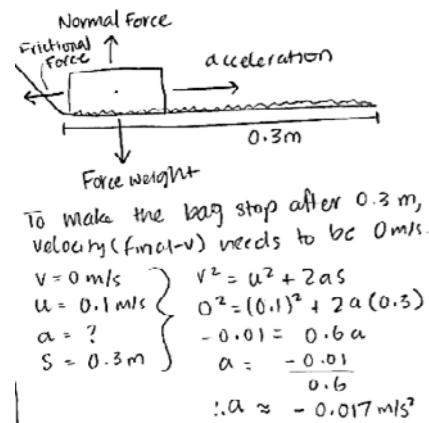 Normal Force
Frictional
Force
acceleration
0.3m
Force weight
To make the bag stop after 0.3 m,
velocity (final-v) needs to be 0m/s.
V = 0 m/s
u = 0.1 m/s
a = ?
S = 0.3 m
v² = u² + 2as
0² = (0.1)² + 2a (0.3)
-0.01 = 0.6a
a = -0.01
0.6
∴ a ≈ -0.017 m/s²